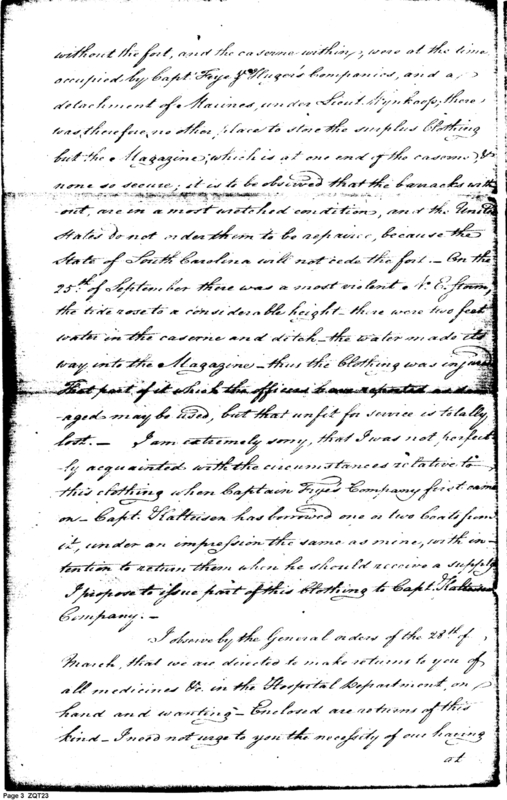 without the fort, and the caserne within, were at the time
occupied by Capt. Frye & Huger's Companies, and a
detachment of Marines, under Lieut. Wynkoop; there
was, therefore, no other place to store the surplus Clothing
but the Magazine; which is at one end of the caserne &
none so secure; it is to be observed that the barracks with
out, are in a most wretched condition, and the United
States do not order them to be repaired, because the
State of South Carolina will not cede the fort. - On the
25th of September there was a most violent N. E. Storm,
the tide rose to a considerable height - there were two feet
water in the caserne and ditch - the water made its
way, into the Magazine - thus the Clothing was injured
That part of it which the officers have reported as dam-
aged may be used, but that unfit for service is totally
lost. - I am extremely sorry, that I was not perfect
ly acquainted with the circumstances relative to
this clothing when Captain Frye's Company first came
on - Capt. Kalteisen has borrowed one or two Coats from
it, under an impression the same as mine, with in-
tention to return them when he should receive a supply
I propose to issue part of this Clothing to Capt. Kalteisen
Company. -
I observe by the General orders of the 28th of
March, that we are directed to make returns to you of
all medicines &c. in the Hospital Department, on
hand and wanting - Enclosed are returns of this
kind - I need not urge to you the necessity of our having
at
Page 3 ZQT23